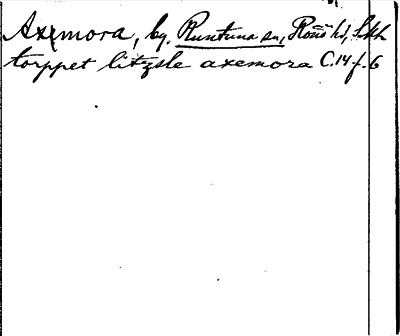 Axemora, by. Runtuna sn, Rönö hd, Sdh
torppet litzsle axemora C.14 f. 6